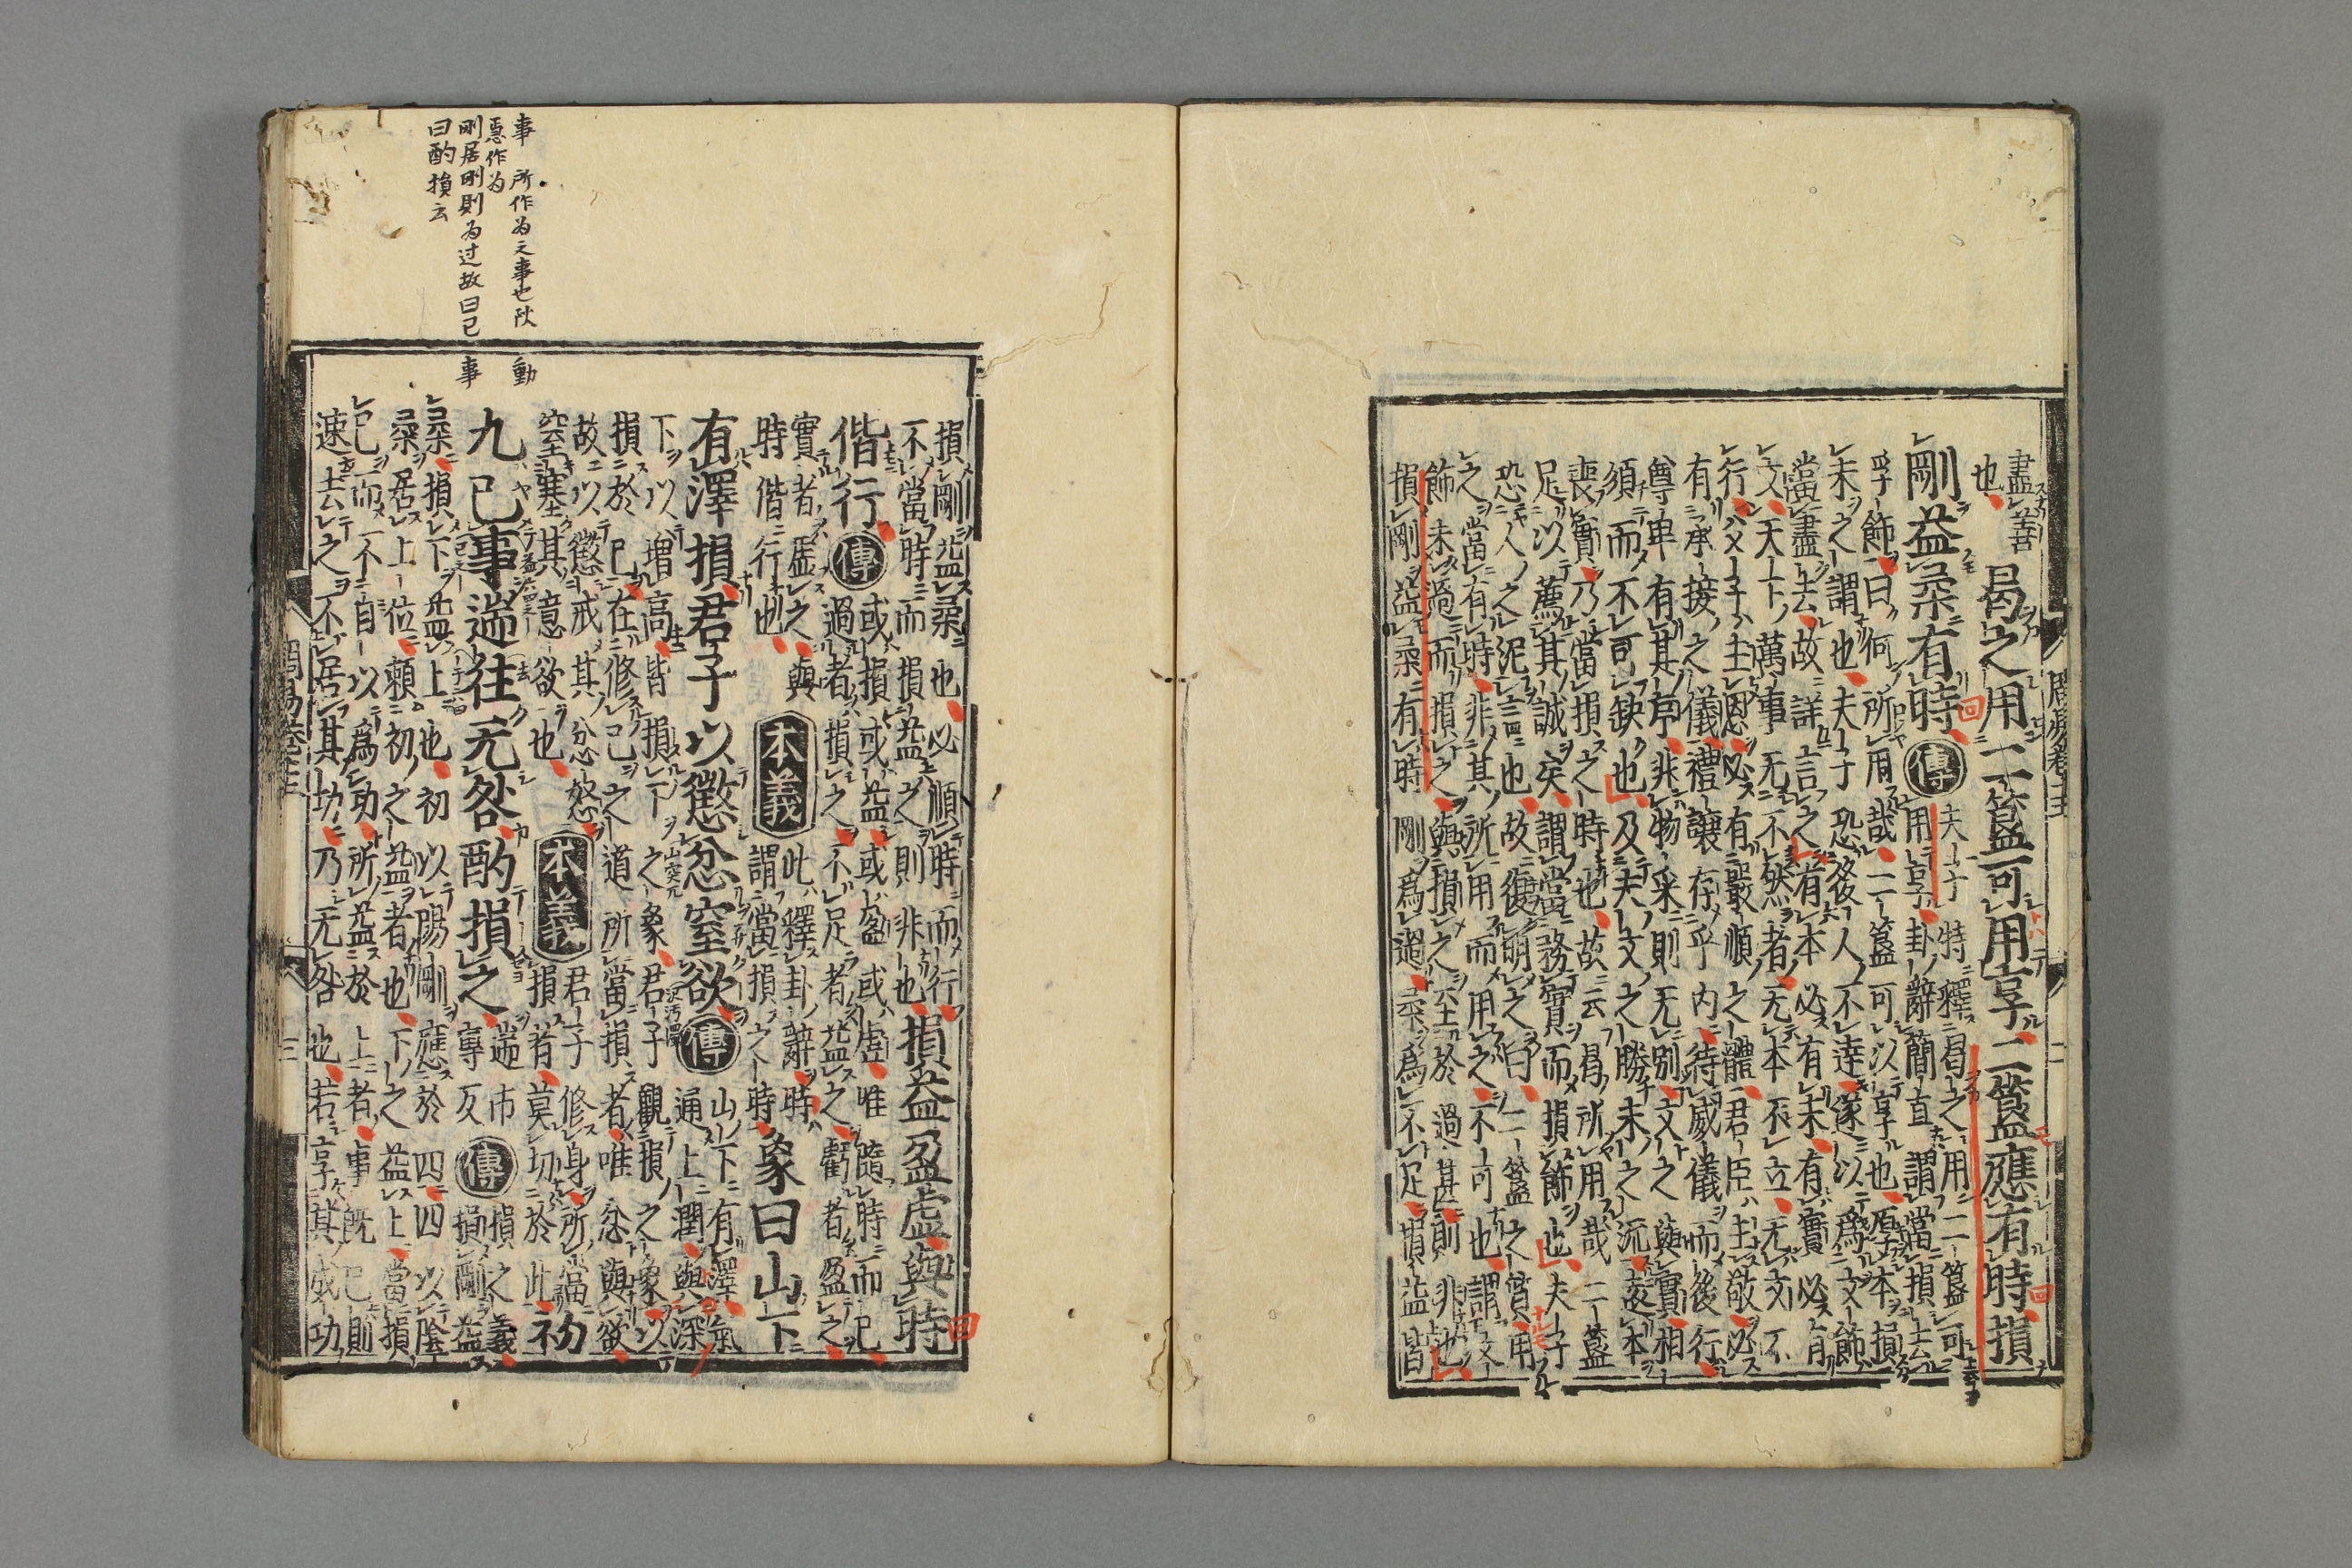 盡善
也
曷之用二簋可用享二簋應有時損
剛益柔有時 傳
夫子特釋曷之用二簋可
用享卦辭簡直謂當損去
浮飾曰何所用哉二簋可以享也厚本損
末之謂也夫子恐後人不達遂以爲文飾
當盡去故詳言之有本必有末有實必有
文天下萬事无不然者无本不立无文不
行父子主恩必有嚴順之體君臣主敬必
有承接之儀禮讓存乎内待威儀而後行
尊卑有其序非物采則无別文之與實相
須而不可缺也及夫文之勝末之流遠本
喪實乃當損之時也故云曷所用哉二簋
足以薦其誠矣謂當務實而損飾也夫子
恐人之泥言也故復明之曰二簋之質用
之當有時非其所用而用之不可也謂文
飾未過而損之與損之至於過甚則非也
損剛益柔有時剛爲過柔爲不足損益皆
損剛益柔也必順時而行
不當時而損益之則非也
損益盈虛與時
偕行 傳
或損或益或盈或虛唯隨時而已
過者損之不足者益之虧者盈之
實者虛之與
時偕行也
本義
此釋卦辭時
謂當損之時
象曰山下
有澤損君子以懲忿窒欲 傳
山下有澤氣
通上潤與深
下以增高皆損下之象君子觀損之象以
損於己在修己之道所當損者唯忿與欲
故以懲戒其忿怒
窒塞其意欲也
本義
君子修身所當
損者莫切於此
初
九已事遄往无咎酌損之
遄市
專反
傳
損之義
損剛益
柔損下益上也初以陽剛應於四四以陰
柔居上位賴初之益者也下之益上當損
己而不自以爲功所益於上者事既已則
速去之不居其功乃无咎也若享其成功
周易卷十三
三
事 所作为之事也
動
惡作为
剛居剛則为过故曰已
事
曰酌損云